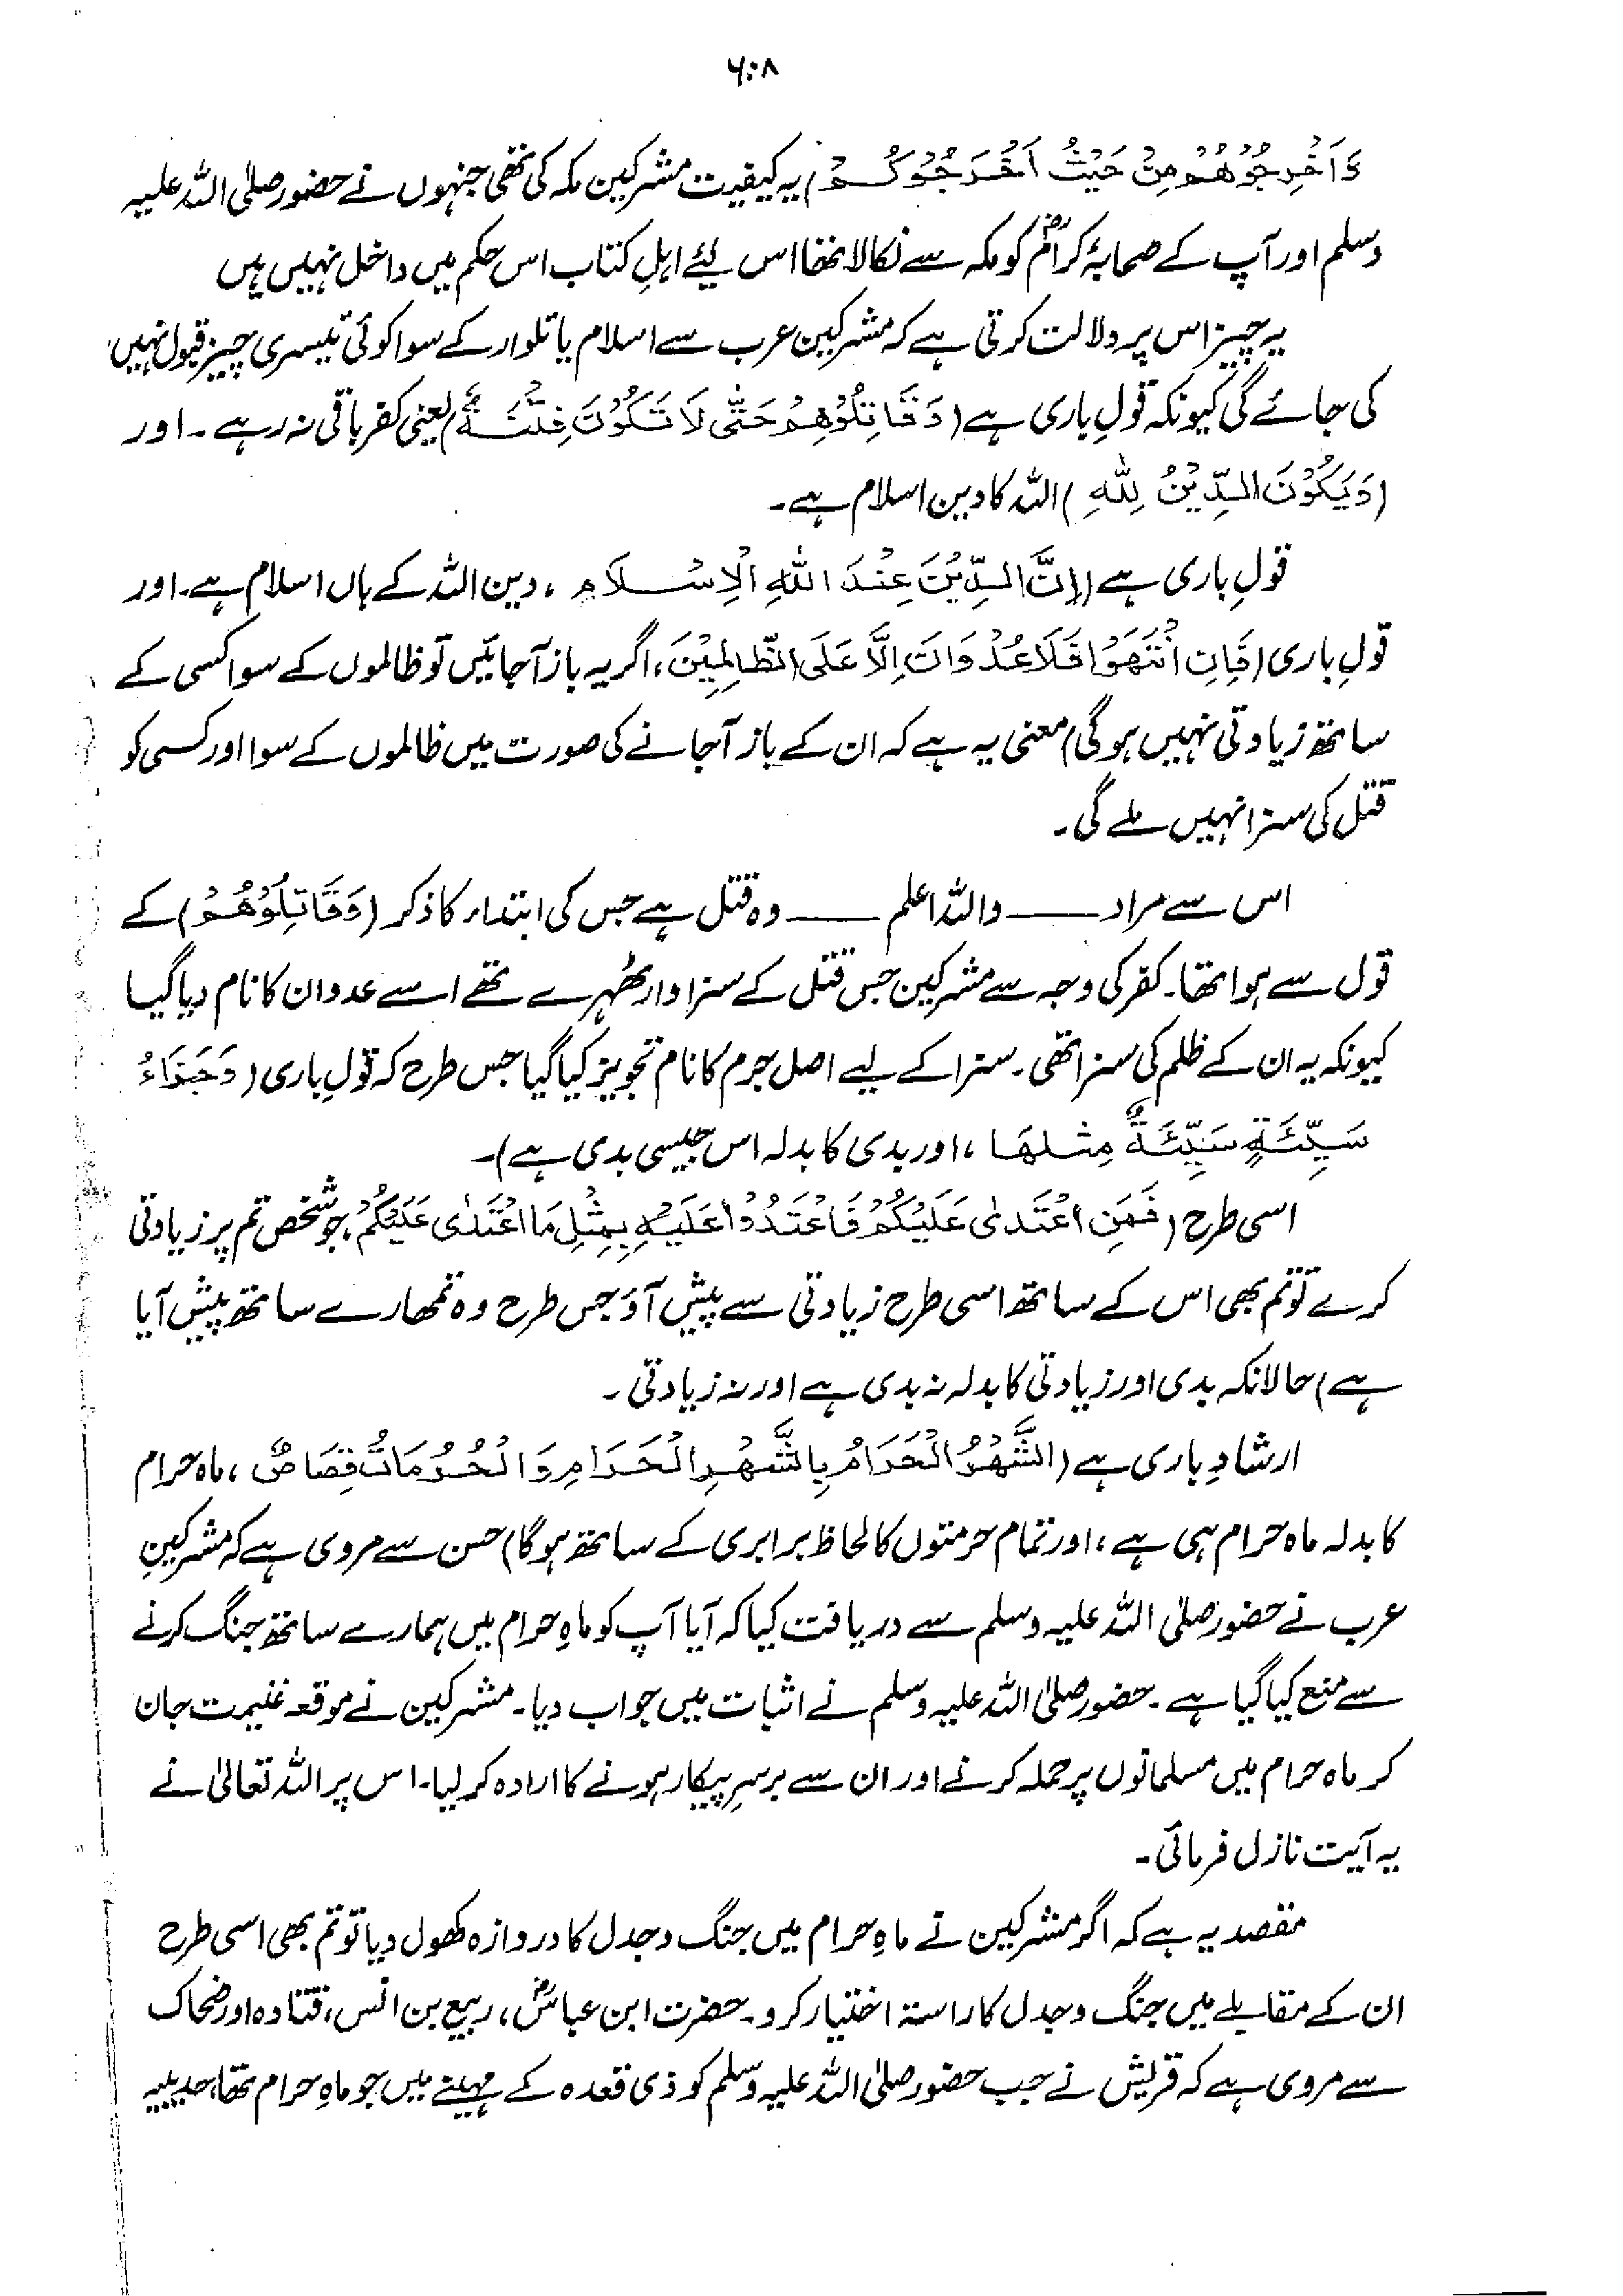 ۶۰۸
وَاَخْرِجُوْهُمْ مِنْ حَیْثُ اَخْرَجُوْکُمْ) یہ کیفیت مشرکین مکہ کی تھی جنہوں نے حضور صلی اللہ علیہ
وسلم اور آپ کے صحابۂ کرامؓ کو مکہ سے نکالا تھا اس لیئے اہلِ کتاب اس حکم میں داخل نہیں ہیں
یہ چیز اس پر دلالت کرتی ہے کہ مشرکین عرب سے اسلام یا تلوار کے سوا کوئی تیسری چیز قبول نہیں
کی جائے گی کیونکہ قولِ باری ہے (وَقَاتِلُوْهُمْ حَتّٰی لَا تَکُوْنَ فِتْنَةٌ) یعنی کفر باقی نہ رہے۔ اور
(وَیَکُوْنَ الدِّیْنُ لِلّٰهِ) اللہ کا دین اسلام ہے۔
قولِ باری ہے (اِنَّ الدِّیْنَ عِنْدَ اللّٰهِ الْاِسْلَام، دین اللہ کے ہاں اسلام ہے۔ اور
قولِ باری (فَاِنِ انْتَهَوْا فَلَا عُدْوَانَ اِلَّا عَلَی الظّٰلِمِیْنَ، اگر یہ باز آجائیں تو ظالموں کے سوا کسی کے
ساتھ زیادتی نہیں ہوگی) معنی یہ ہے کہ ان کے باز آجانے کی صورت میں ظالموں کے سوا اور کسی کو
قتل کی سزا نہیں ملے گی۔
اس سے مراد ــــــ واللہ اعلم ــــــ وہ قتل ہے جس کی ابتداء کا ذکر (وَقَاتِلُوْهُمْ) کے
قول سے ہوا تھا۔ کفر کی وجہ سے مشرکین جس قتل کے سزاوار ٹھہرے تھے اسے عدوان کا نام دیا گیا
کیونکہ یہ ان کے ظلم کی سزا تھی۔ سزا کے لیے اصل جرم کا نام تجویز کیا گیا جس طرح کہ قولِ باری (وَجَزَاءُ
سَیِّئَةٍ سَیِّئَةٌ مِثْلُهَا، اور بدی کا بدلہ اس جیسی بدی ہے)۔
اسی طرح (فَمَنِ اعْتَدٰی عَلَیْکُمْ فَاعْتَدُوْا عَلَیْهِ بِمِثْلِ مَا اعْتَدٰی عَلَیْکُمْ، جو شخص تم پر زیادتی
کرے تو تم بھی اس کے ساتھ اسی طرح زیادتی سے پیش آؤ جس طرح وہ تمھارے ساتھ پیش آیا
ہے) حالانکہ بدی اور زیادتی کا بدلہ نہ بدی ہے اور نہ زیادتی۔
ارشادِ باری ہے (الشَّهْرُ الْحَرَامُ بِالشَّهْرِ الْحَرَامِ وَالْحُرُمَاتُ قِصَاصٌ، ماہ حرام
کا بدلہ ماہ حرام ہی ہے، اور تمام حرمتوں کا لحاظ برابری کے ساتھ ہوگا) حسن سے مروی ہے کہ مشرکینِ
عرب نے حضور صلی اللہ علیہ وسلم سے دریافت کیا کہ آیا آپ کو ماہِ حرام میں ہمارے ساتھ جنگ کرنے
سے منع کیا گیا ہے۔ حضور صلی اللہ علیہ وسلم نے اثبات میں جواب دیا۔ مشرکین نے موقعہ غنیمت جان
کر ماہ حرام میں مسلمانوں پر حملہ کرنے اور ان سے برسرِ پیکار ہونے کا ارادہ کر لیا۔ اس پر اللہ تعالیٰ نے
یہ آیت نازل فرمائی۔
مقصد یہ ہے کہ اگر مشرکین نے ماہِ حرام میں جنگ و جدل کا دروازہ کھول دیا تو تم بھی اسی طرح
ان کے مقابلے میں جنگ و جدل کا راستہ اختیار کرو۔ حضرت ابن عباسؓ، ربیع بن انس، قتادہ اور ضحاک
سے مروی ہے کہ قریش نے جب حضور صلی اللہ علیہ وسلم کو ذی قعدہ کے مہینے میں جو ماہِ حرام تھا، حدیبیہ